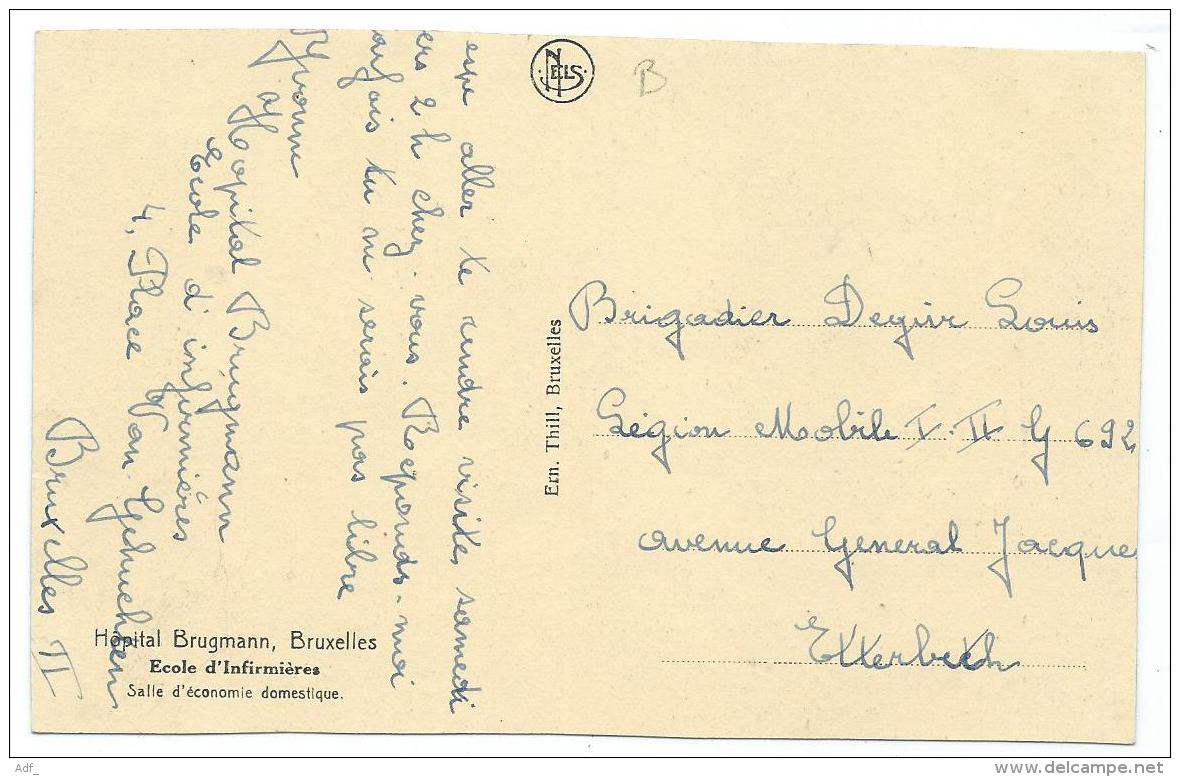 NELS
B
espe aller te rendre visite, samedi
ers 2 h chez vous. Reponds-moi
tu ne serais pas libre
Yvonne
Hopital Brugmann
Ecole d'infirmières
4, Place Van Gehuchten
Bruxelles II
Ern. Thill, Bruxelles
Brigadier Louis
Légion Mobile I.II G 692
avenue General Jacque
Etterbeek
Hôpital Brugmann, Bruxelles
Ecole d'Infirmières
Salle d'économie domestique.
Adf_
www.delcampe.net